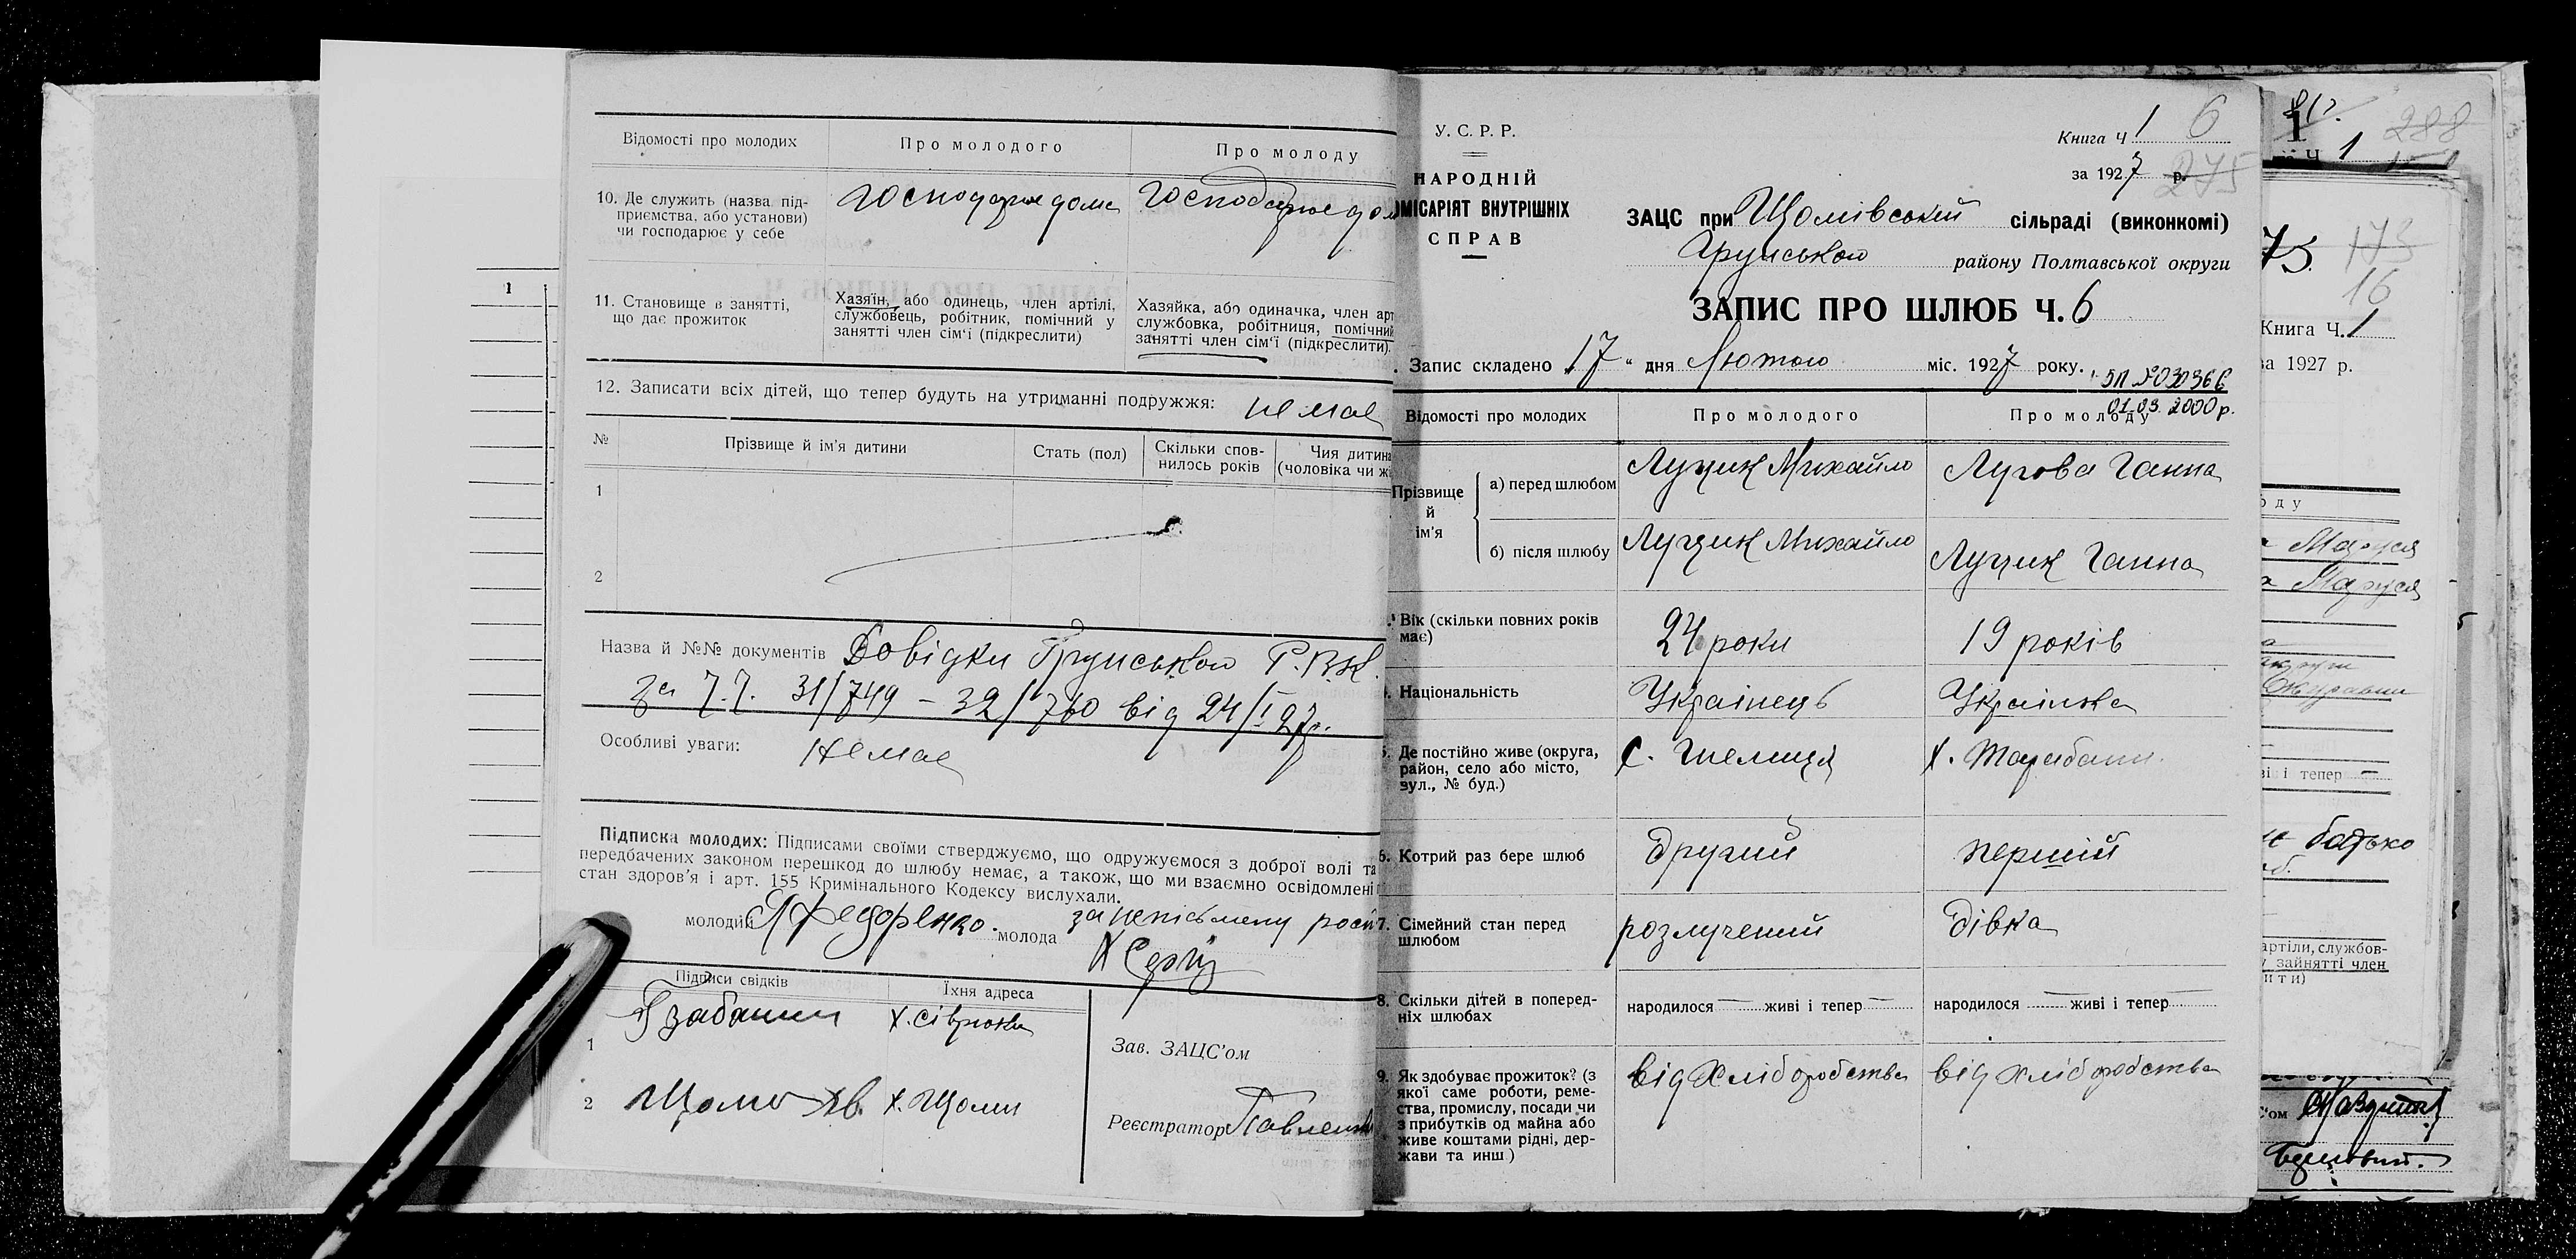 Відомості про молодих
Про молодого
Про молоду
10. Де служить (назва під-
приємства, або установи)
чи господарює у себе
господарює дома
господарює дом
11. Становище в занятті,
що дає прожиток
Хазяїн, або одинець, член артілі,
службовець, робітник, помічний у
занятті член сім'ї (підкреслити)
Хазяйка, або одиначка, член арт
службовка, робітниця, помічний
занятті член сім'ї (підкреслити).
12. Записати всіх дітей, що тепер будуть на утриманні подружжя: немає
№
Прізвище й ім'я дитини
Стать (пол)
Скільки спов-
нилось років
Чия дитина
(чоловіка чи ж
1
2
Назва й №№ документів Довідки Грунського Р.В.К.
за 31/749 – 32/760 від 24/I 27р.
Особливі уваги: Немає
Підписка молодих: Підписами своїми стверджуємо, що одружуємося з доброї волі та
передбачених законом перешкод до шлюбу немає, а також, що ми взаємно освідомлені
стан здоров'я і арт. 155 Кримінального Кодексу вислухали.
молодий
молода за непісьмену
Підписи свідків
Їхня адреса
1
2 х. Щоми
Зав. ЗАЦС'ом
Реєстратор
1
У. С. Р. Р.
НАРОДНІЙ
ОМІСАРІЯТ ВНУТРІШНІХ
СПРАВ
Книга Ч 1 6
за 1927 р. 275
ЗАЦС при Щомівській сільраді (виконкомі)
Грунського району Полтавської округи
ЗАПИС ПРО ШЛЮБ Ч. 6
Запис складено 17 " дня Лютого міс. 1927 року.
5П №030366
01.03. 2000 р.
Відомості про молодих
Про молодого
Про молоду
Прізвище
й
ім'я
а) перед шлюбом
Луцик Михайло
Лугова Ганна
б) після шлюбу
Луцик Михайло
Луцик Ганна
Вік (скільки повних років
має)
24 роки
19 років
Національність
Українець
Українка
Де постійно живе (округа,
район, село або місто,
вул., № буд.)
6. Котрий раз бере шлюб
Другий
перший
7. Сімейний стан перед
шлюбом
розлучений
дівка
8. Скільки дітей в поперед-
ніх шлюбах
народилося — живі і тепер —
народилося — живі і тепер —
9. Як здобуває прожиток? (з
якої саме роботи, реме-
ства, промислу, посади чи
з прибутків од майна або
живе коштами рідні, дер-
жави та инш.)
від хліборобства
від хліборобства
1
Ч 1
288
75.
173
16
Книга Ч. 1
за 1927 р.
ду
Маруся
Маруся
і тепер —
батько
артіли, службов-
у зайнятті член
ити)
'ом